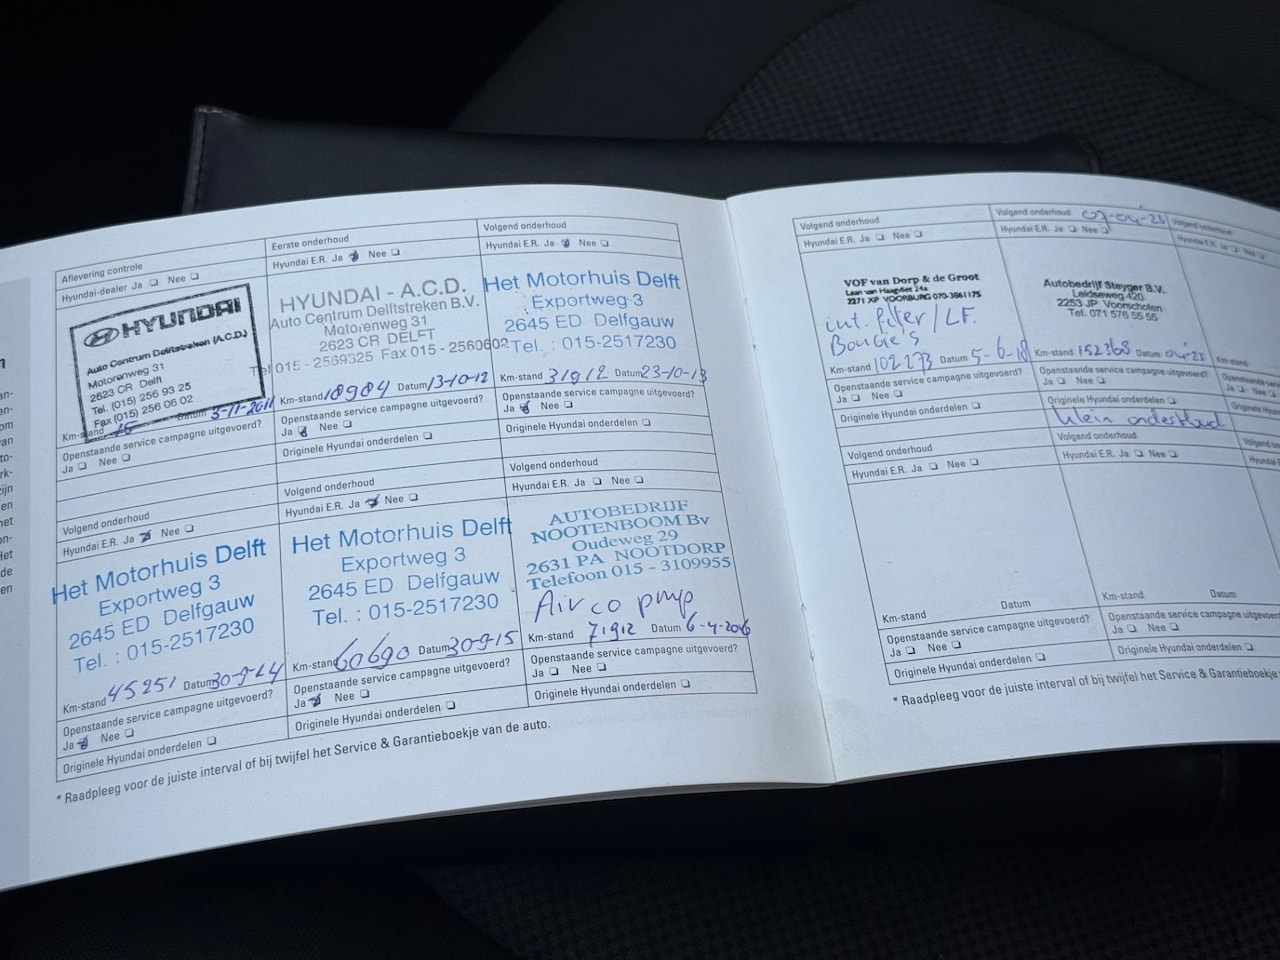 Aflevering controle
Hyundai-dealer Ja ❑ Nee ❑
HYUNDAI
Auto Centrum Delftstreken (A.C.D.)
Motorenweg 31
2623 CR Delft
Tel. (015) 256 93 25
Fax (015) 256 06 02
Km-stand 15 Datum 3-11-2011
Openstaande service campagne uitgevoerd?
Ja ❑ Nee ❑
Eerste onderhoud
Hyundai E.R. Ja ❑ Nee ❑
HYUNDAI - A.C.D.
Auto Centrum Delftstreken B.V.
Motorenweg 31
2623 CR DELFT
Tel 015 - 2569325 Fax 015 - 2560602
Km-stand 18984 Datum 13-10-12
Openstaande service campagne uitgevoerd?
Ja ❑ Nee ❑
Originele Hyundai onderdelen ❑
Volgend onderhoud
Hyundai E.R. Ja ❑ Nee ❑
Het Motorhuis Delft
Exportweg 3
2645 ED Delfgauw
Tel. : 015-2517230
Km-stand 31912 Datum 23-10-13
Openstaande service campagne uitgevoerd?
Ja ❑ Nee ❑
Originele Hyundai onderdelen ❑
Volgend onderhoud
Hyundai E.R. Ja ❑ Nee ❑
Het Motorhuis Delft
Exportweg 3
2645 ED Delfgauw
Tel. : 015-2517230
Km-stand 45251 Datum 30-9-14
Openstaande service campagne uitgevoerd?
Ja ❑ Nee ❑
Originele Hyundai onderdelen ❑
Volgend onderhoud
Hyundai E.R. Ja ❑ Nee ❑
Het Motorhuis Delft
Exportweg 3
2645 ED Delfgauw
Tel. : 015-2517230
Km-stand 60690 Datum 30-9-15
Openstaande service campagne uitgevoerd?
Ja ❑ Nee ❑
Originele Hyundai onderdelen ❑
Volgend onderhoud
Hyundai E.R. Ja ❑ Nee ❑
AUTOBEDRIJF
NOOTENBOOM Bv
Oudeweg 29
2631 PA NOOTDORP
Telefoon 015 - 3109955
Airco pmp
Km-stand 71912 Datum 6-4-2016
Openstaande service campagne uitgevoerd?
Ja ❑ Nee ❑
Originele Hyundai onderdelen ❑
* Raadpleeg voor de juiste interval of bij twijfel het Service & Garantieboekje van de auto.
Volgend onderhoud
Hyundai E.R. Ja ❑ Nee ❑
VOF van Dorp & de Groot
Laan van Haagvliet 24a
2271 XP VOORBURG 070-3861175
int. filter / LF.
Bougie's
Km-stand 102273 Datum 5-6-18
Openstaande service campagne uitgevoerd?
Ja ❑ Nee ❑
Originele Hyundai onderdelen ❑
Volgend onderhoud 07-04-23
Hyundai E.R. Ja ❑ Nee ❑
Autobedrijf Steyger B.V.
Leidseweg 420
2253 JP Voorschoten
Tel. 071 576 55 55
Km-stand 152368 Datum
Openstaande service campagne uitgevoerd?
Ja ❑ Nee ❑
Originele Hyundai onderdelen ❑
klein onderhoud
Volgend onderhoud
Km-stand
Volgend onderhoud
Hyundai E.R. Ja ❑ Nee ❑
Km-stand Datum
Openstaande service campagne uitgevoerd?
Ja ❑ Nee ❑
Originele Hyundai onderdelen ❑
Volgend onderhoud
Hyundai E.R. Ja ❑ Nee ❑
Km-stand Datum
Openstaande service campagne uitgevoerd?
Ja ❑ Nee ❑
Originele Hyundai onderdelen ❑
* Raadpleeg voor de juiste interval of bij twijfel het Service & Garantieboekje